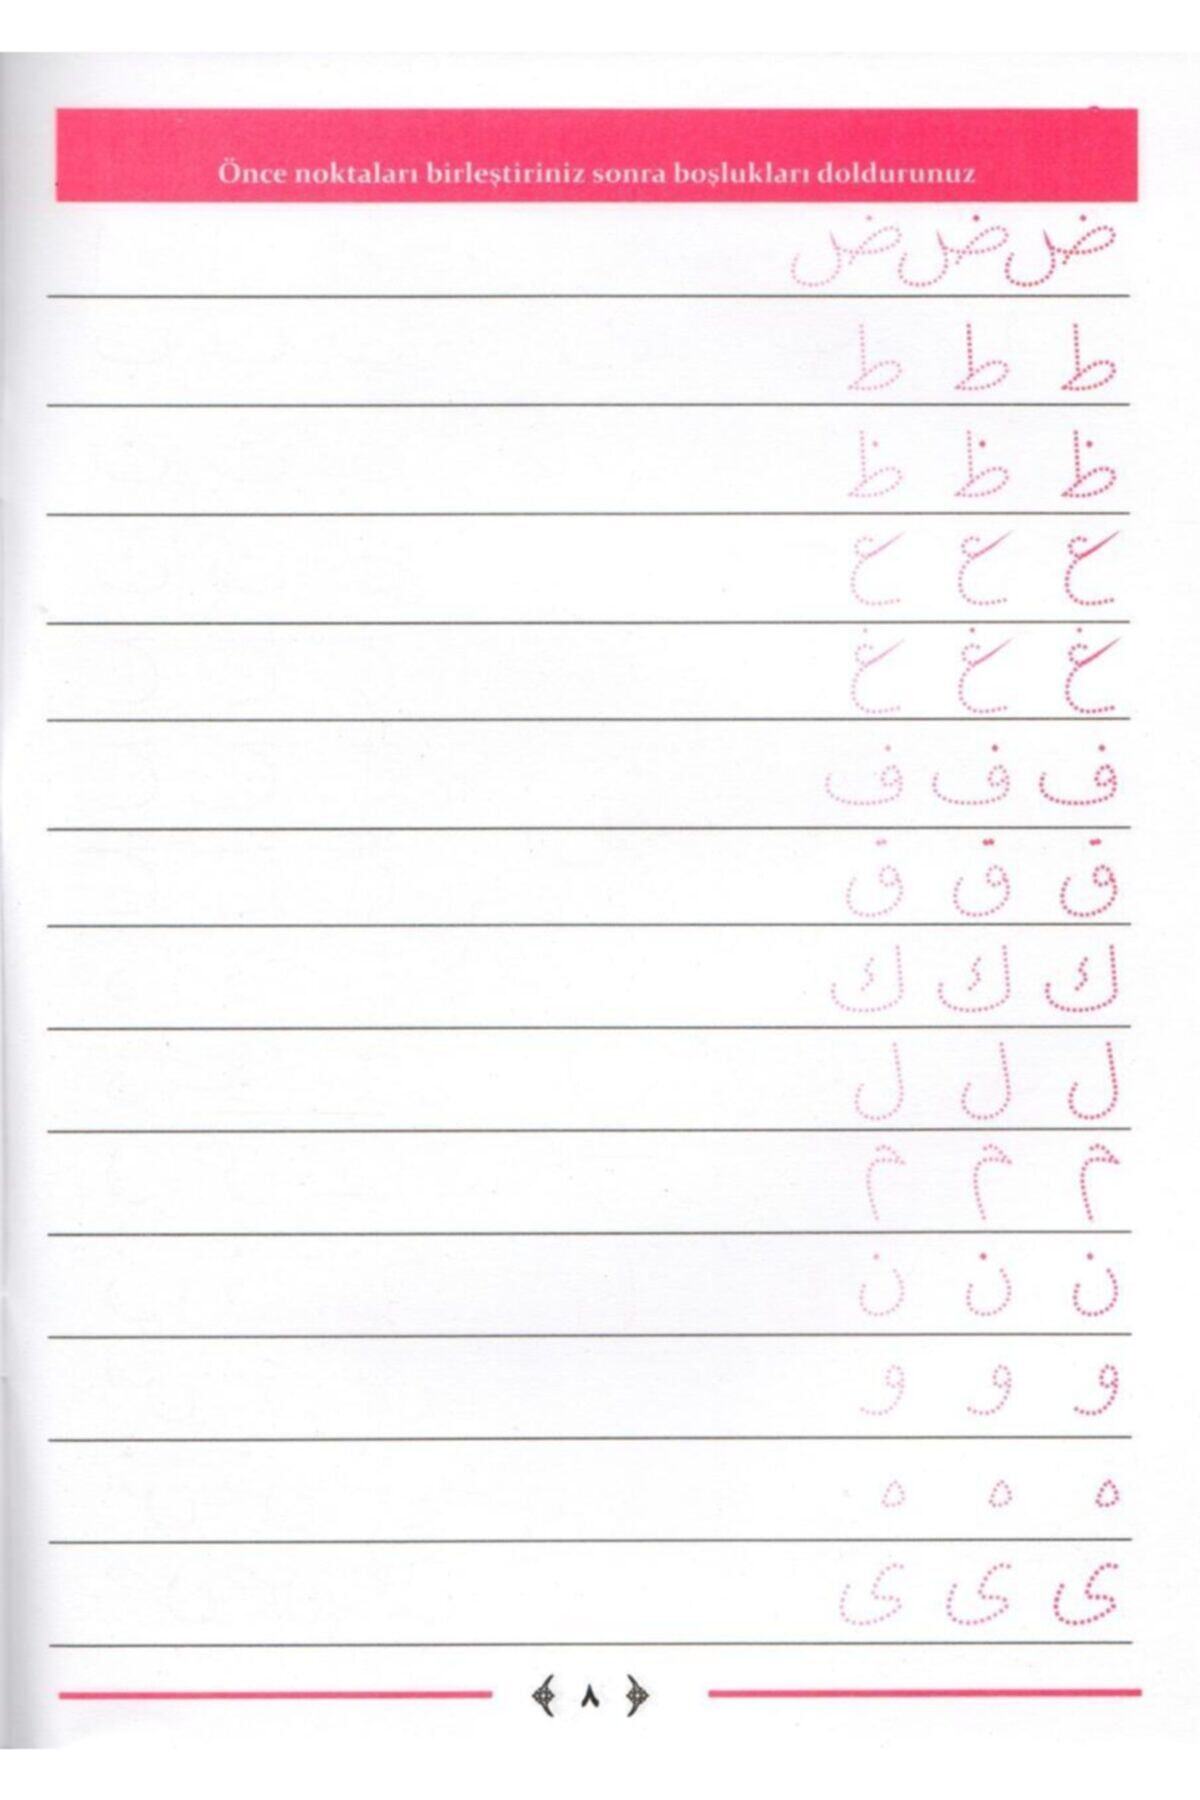 Önce noktaları birleştiriniz sonra boşlukları doldurunuz
ض ض ض
ط ط ط
ظ ظ ظ
ع ع ع
غ غ غ
ف ف ف
ق ق ق
ك ك ك
ل ل ل
م م م
ن ن ن
و و و
ه ه ه
ى ى ى
٨